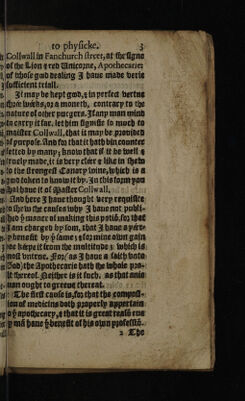 to physicke. 3
Collwall in Fanchurch street, at the signe
of the Lion & red Unicorne, Apothecarie:
of whose gud dealing I have made verie
sufficient triall.
It may be kept good, & in perfect vertue
three weeks, or a moneth, contrary to the
nature of other purgers. If any man mind
to carry it far, let him signifie so much to
maister Collwall, that it may be provided
of purpose. And for that it hath bin counter
fetted by many; know that if it be well &
truely made, it is very clear & like in shew
to the strongest Canary wine, which is a
good token to know it by. In this form you
shal have it of Master Collwall.
And here I have thought very requisite
to shew the causes why I have not publi-
shed yͤ maner of making this potiō, for that
I am charged by som, that I have a pry-
vy benefit by yͤ same, & for mine own gain
to keepe it from the multitude; which is
most untrue. For, as I have a faith unto
God, the Apothecarie hath the whole pro-
fit thereof. Neither is it such, as that anie
man ought to greeve thereat.
The first cause is, for that the composi-
tion of medicins doth properly appertain
to yͤ apothecary, & that it is great reasō eve
ry mā have yͤ benefit of his own professiō.
2 The